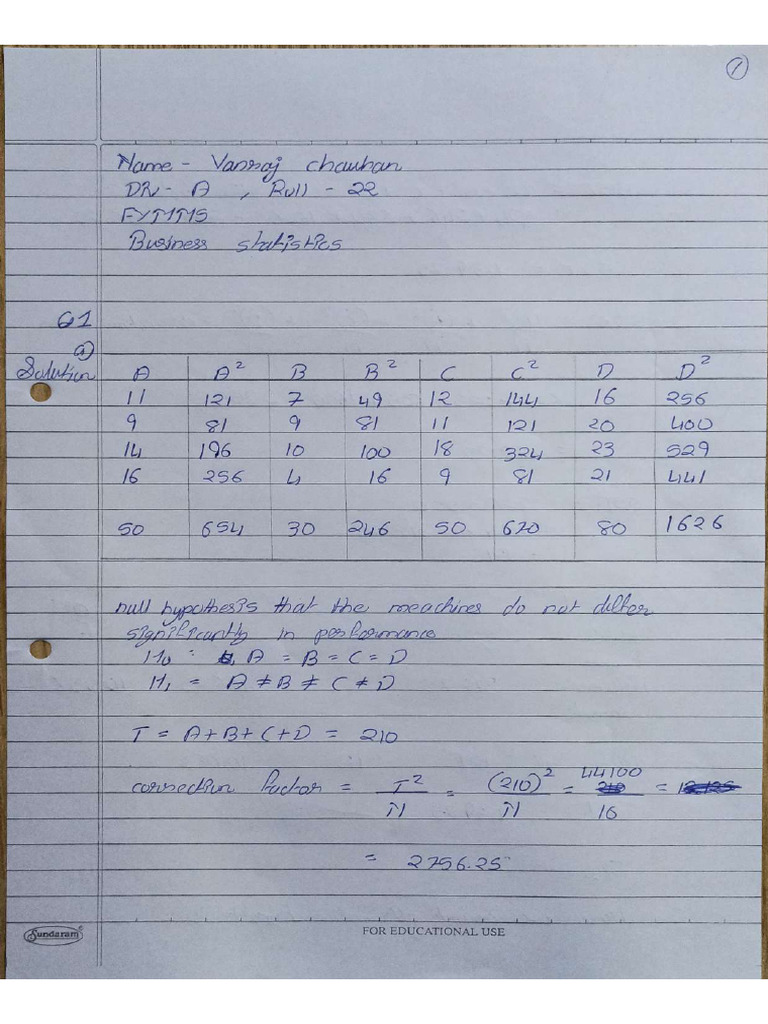 1
Name - Vansraj Chauhan
DIV - A , Roll - 22
FYMMS
Business statistics
Q1
a)
Solution
A A² B B² C C² D D²
11 121 7 49 12 144 16 256
9 81 9 81 11 121 20 400
14 196 10 100 18 324 23 529
16 256 4 16 9 81 21 441
50 654 30 246 50 670 80 1626
null hypothesis that the meachines do not differ
significantly in performance
H₀ = A = B = C = D
H₁ = A ≠ B ≠ C ≠ D
T = A+B+C+D = 210
correction factor = T²/N = (210)²/N = 44100/16 =
= 2756.25
Sundaram
FOR EDUCATIONAL USE